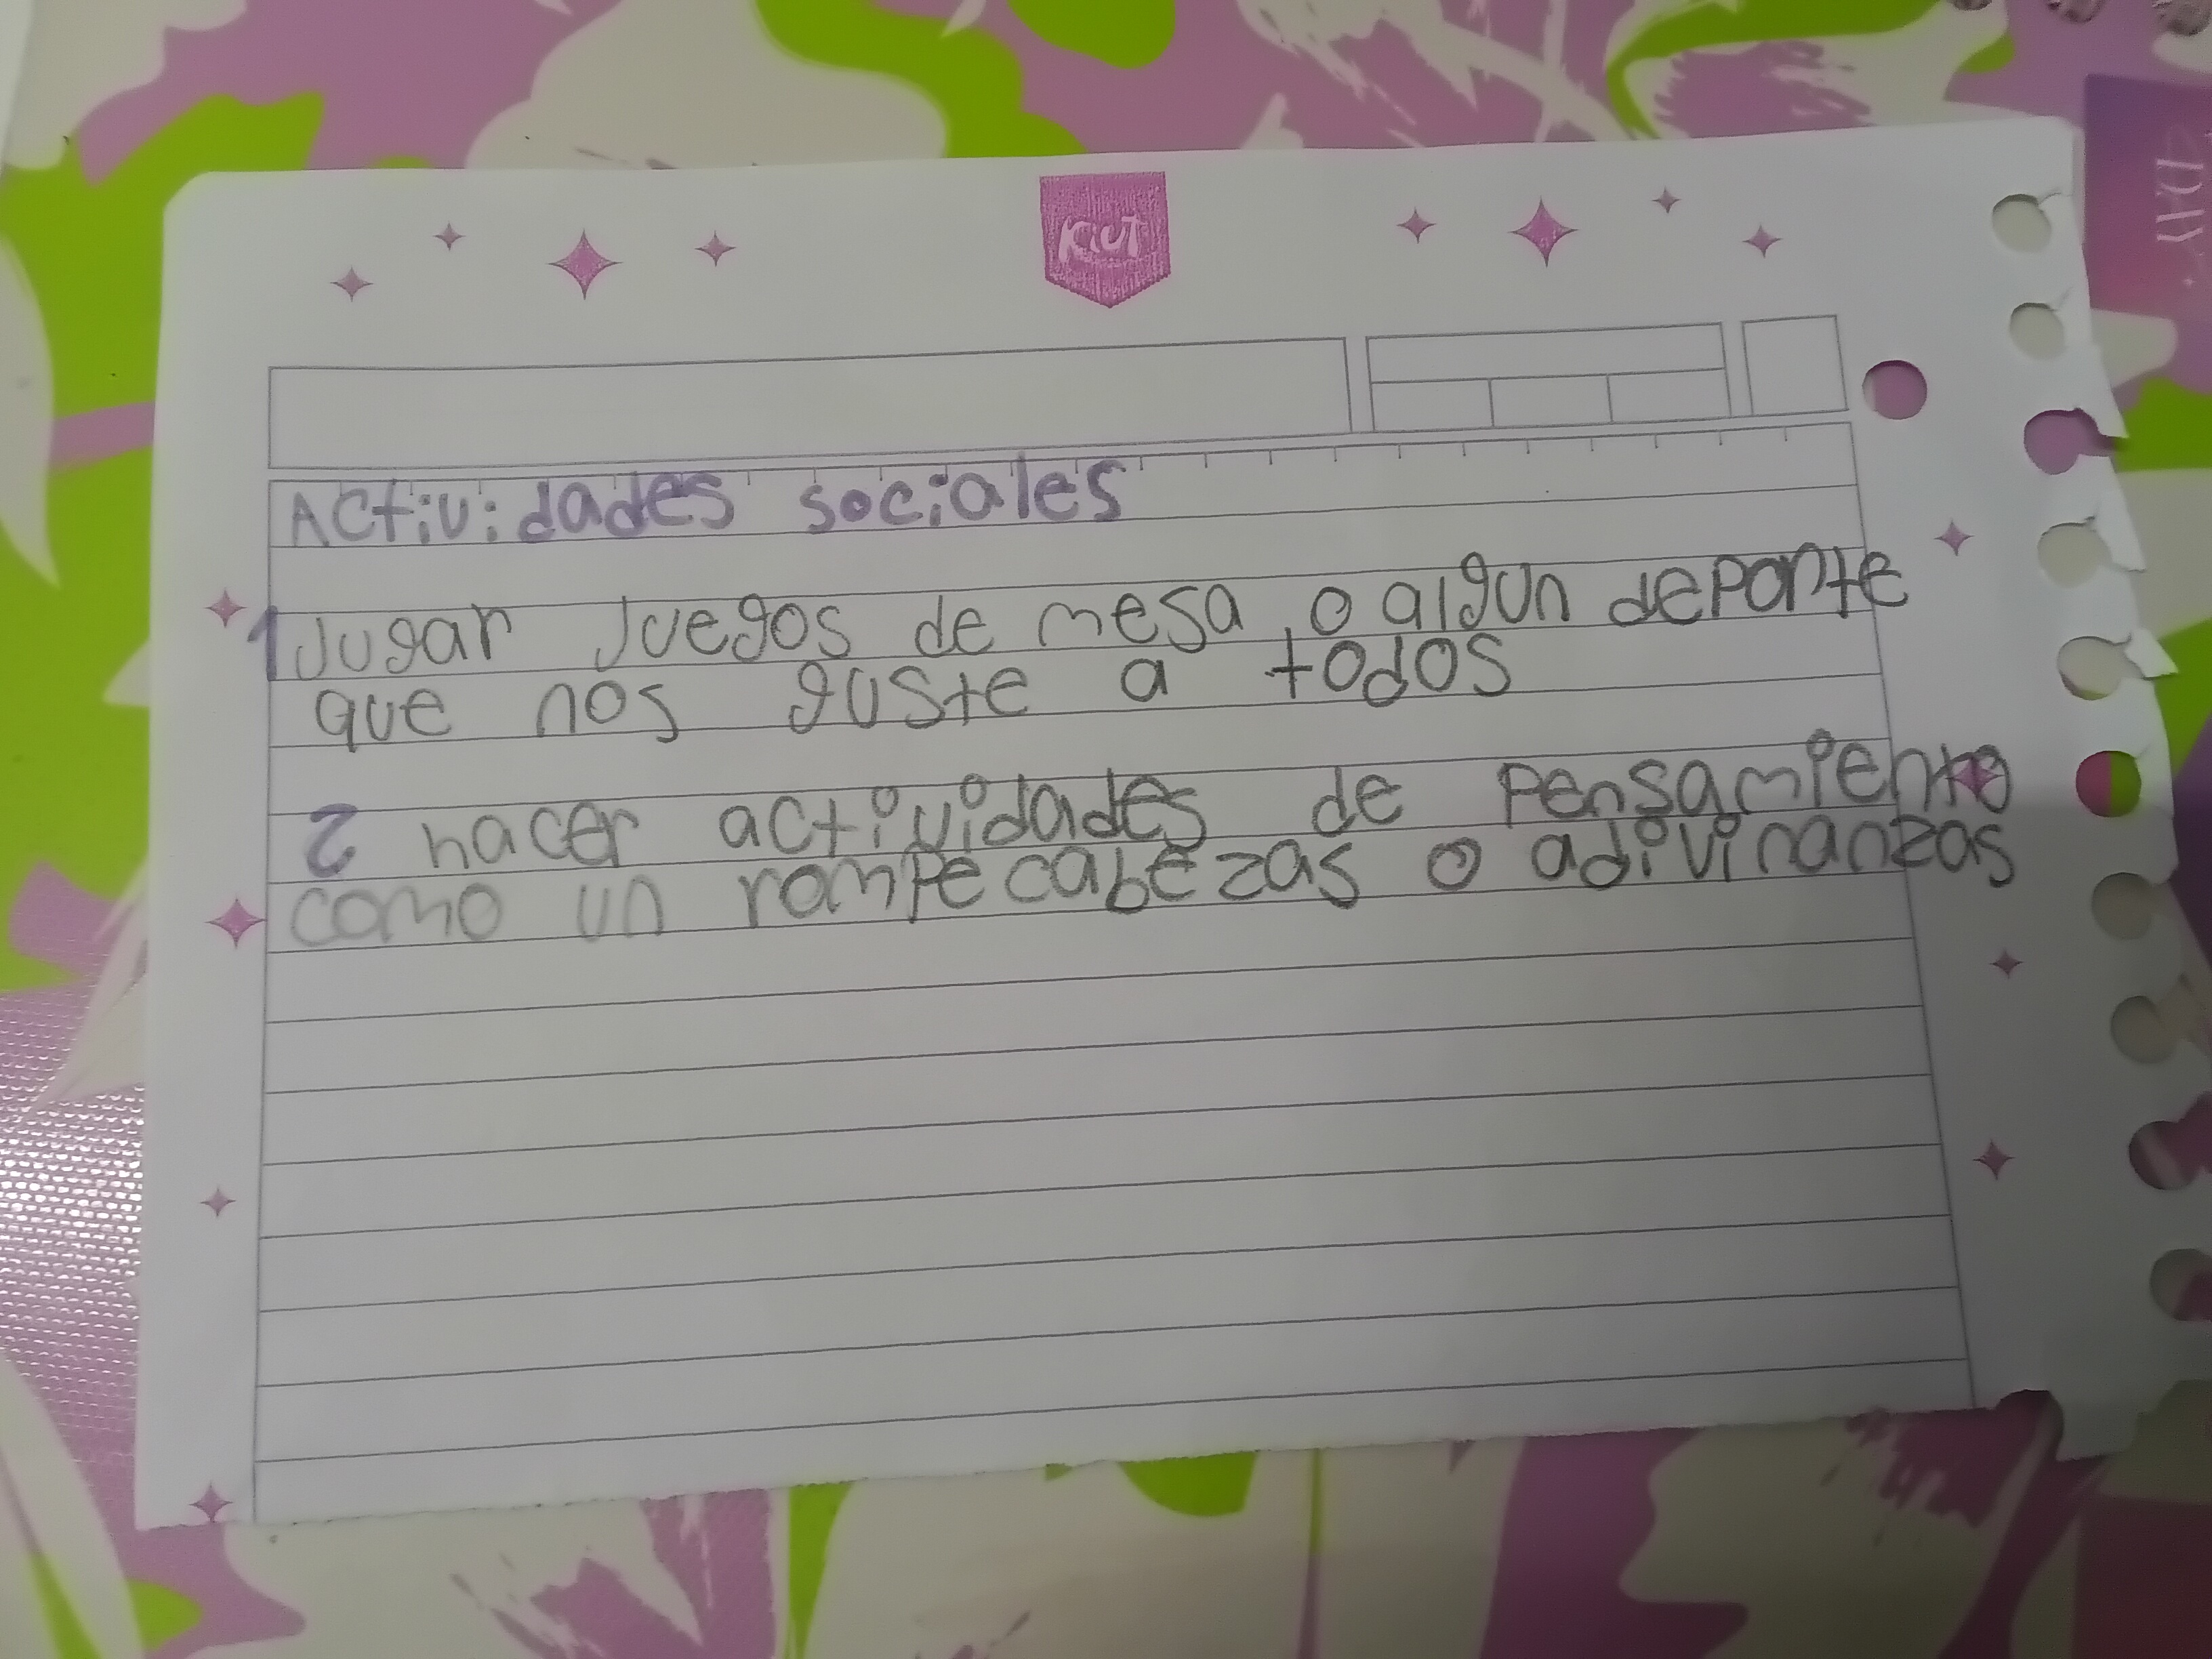 Kiut
Actividades sociales
1 Jugar Juegos de mesa, o algun deporte
que nos guste a todos
2 hacer actividades de pensamiento
como un rompecabezas o adivinanzas